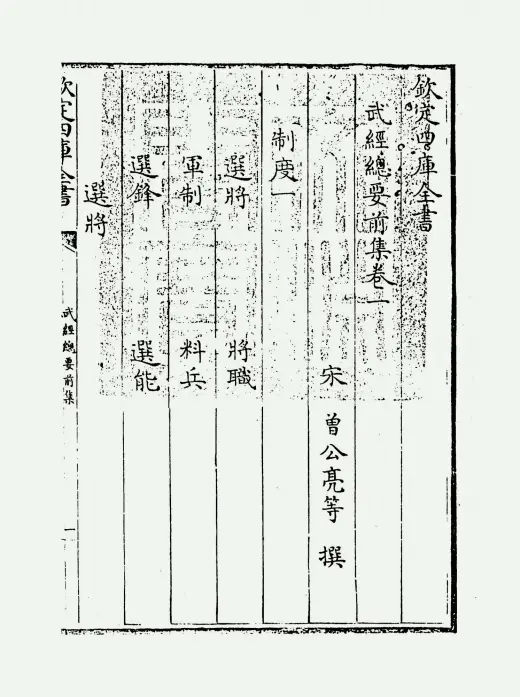 欽定四庫全書
武經總要前集卷一
宋 曾公亮等 撰
制度一
選將 將職
軍制 料兵
選鋒 選能
選將
欽定四庫全書
武經總要前集
一